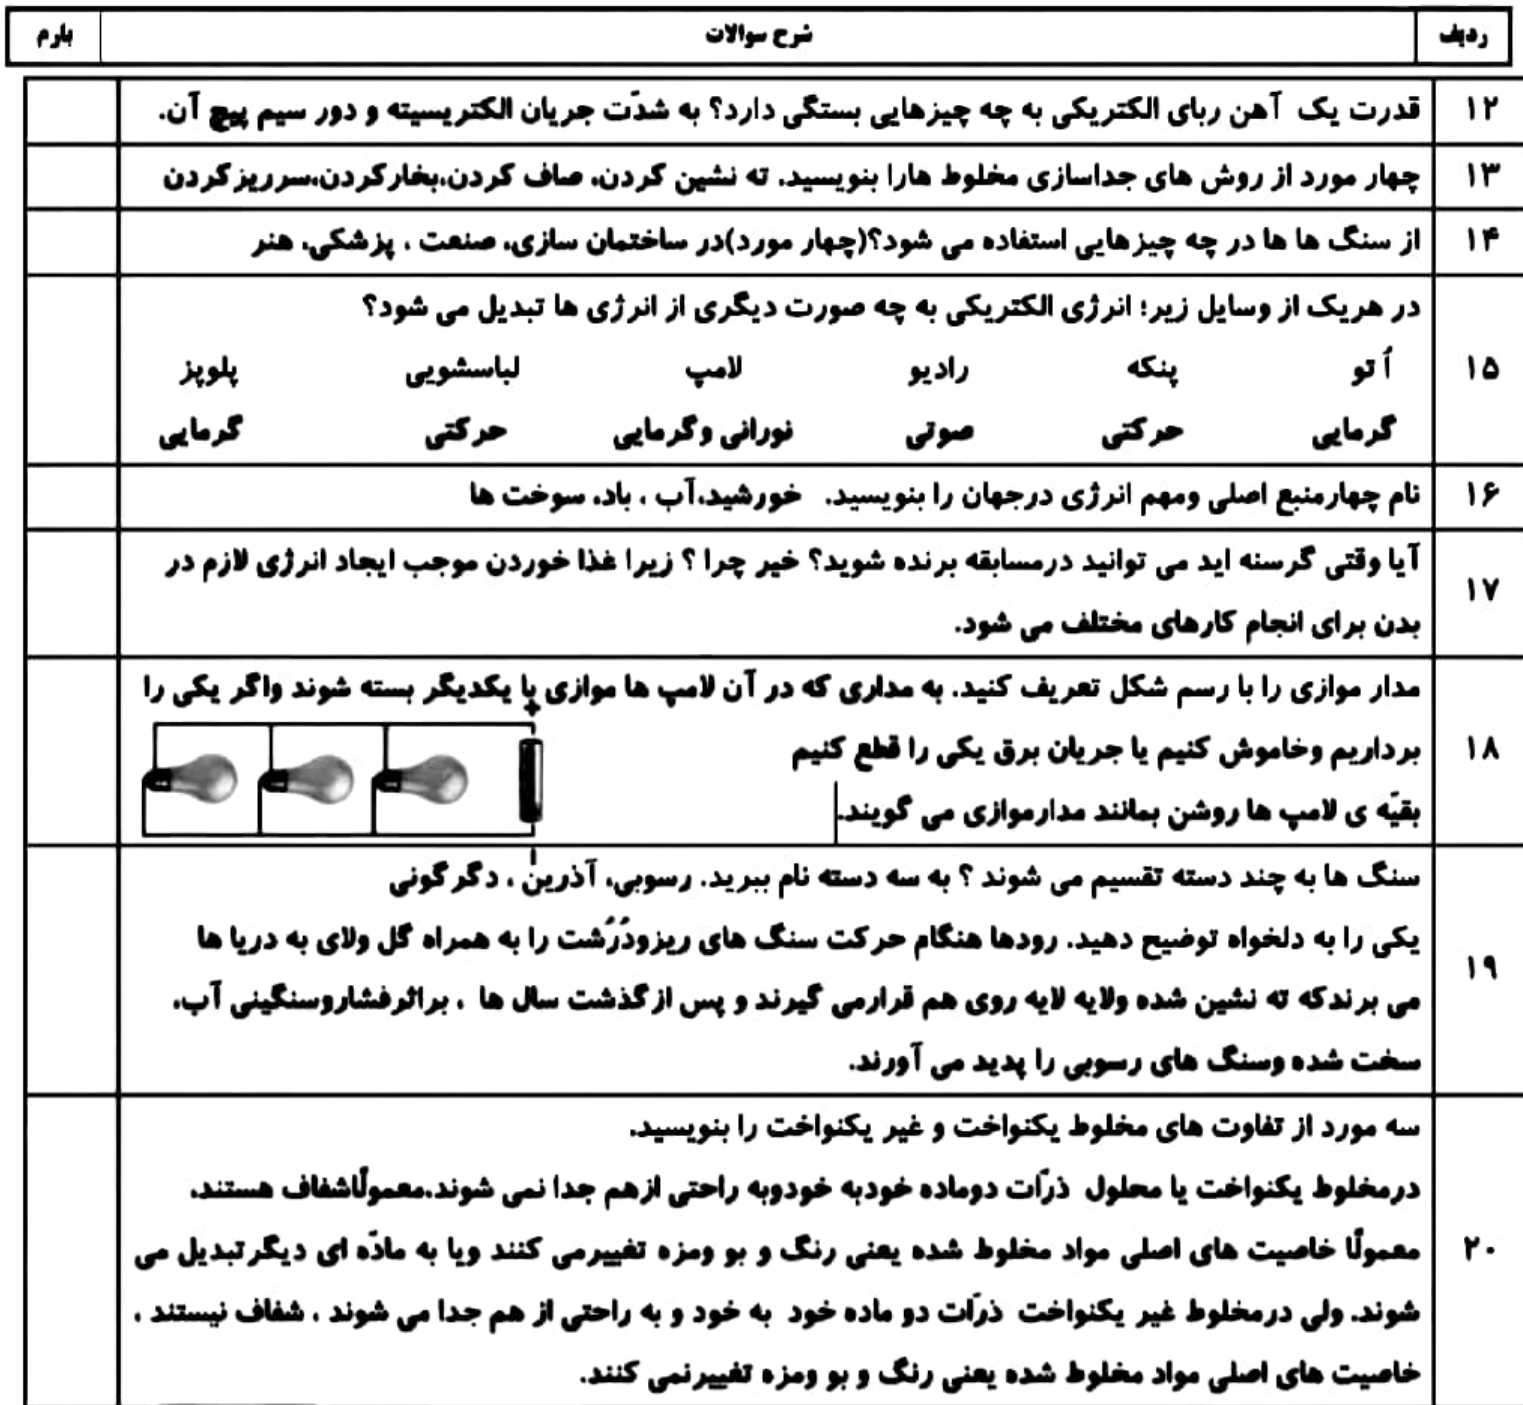 ردیف شرح سوالات بارم
۱۲ قدرت یک آهن ربای الکتریکی به چه چیزهایی بستگی دارد؟ به شدّت جریان الکتریسیته و دور سیم پیچ آن.
۱۳ چهار مورد از روش های جداسازی مخلوط هارا بنویسید. ته نشین کردن، صاف کردن،بخارکردن،سرریزکردن
۱۴ از سنگ ها ها در چه چیزهایی استفاده می شود؟(چهار مورد)در ساختمان سازی، صنعت ، پزشکی، هنر
در هریک از وسایل زیر؛ انرژی الکتریکی به چه صورت دیگری از انرژی ها تبدیل می شود؟
۱۵ اُتو پنکه رادیو لامپ لباسشویی پلوپز
گرمایی حرکتی صوتی نورانی وگرمایی حرکتی گرمایی
۱۶ نام چهارمنبع اصلی ومهم انرژی درجهان را بنویسید. خورشید،آب ، باد، سوخت ها
۱۷ آیا وقتی گرسنه اید می توانید درمسابقه برنده شوید؟ خیر چرا ؟ زیرا غذا خوردن موجب ایجاد انرژی لازم در
بدن برای انجام کارهای مختلف می شود.
مدار موازی را با رسم شکل تعریف کنید. به مداری که در آن لامپ ها موازی با یکدیگر بسته شوند واگر یکی را
+
۱۸ برداریم وخاموش کنیم یا جریان برق یکی را قطع کنیم
بقیّه ی لامپ ها روشن بمانند مدارموازی می گویند.
سنگ ها به چند دسته تقسیم می شوند ؟ به سه دسته نام ببرید. رسوبی، آذرین ، دگرگونی
یکی را به دلخواه توضیح دهید. رودها هنگام حرکت سنگ های ریزودُرُشت را به همراه گل ولای به دریا ها
۱۹ می برندکه ته نشین شده ولایه لایه روی هم قرارمی گیرند و پس ازگذشت سال ها ، براثرفشاروسنگینی آب،
سخت شده وسنگ های رسوبی را پدید می آورند.
سه مورد از تفاوت های مخلوط یکنواخت و غیر یکنواخت را بنویسید.
درمخلوط یکنواخت یا محلول ذرّات دوماده خودبه خودوبه راحتی ازهم جدا نمی شوند،معمولًاشفاف هستند،
۲۰ معمولًا خاصیت های اصلی مواد مخلوط شده یعنی رنگ و بو ومزه تغییرمی کنند ویا به مادّه ای دیگرتبدیل می
شوند. ولی درمخلوط غیر یکنواخت ذرّات دو ماده خود به خود و به راحتی از هم جدا می شوند ، شفاف نیستند ،
خاصیت های اصلی مواد مخلوط شده یعنی رنگ و بو ومزه تغییرنمی کنند.